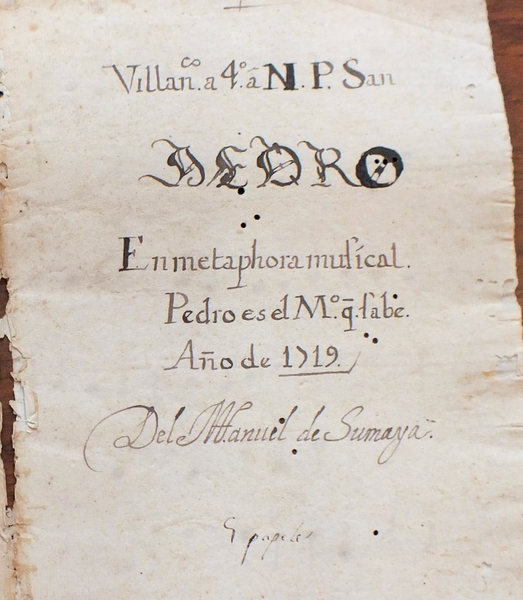 Villañ.ᶜᵒ a 4.º â N. P. San
PEDRO
En metaphora muſical.
Pedro es el Mº. q̄. ſabe.
Año de 1719.
Del Manuel de Sumaya.
papeles